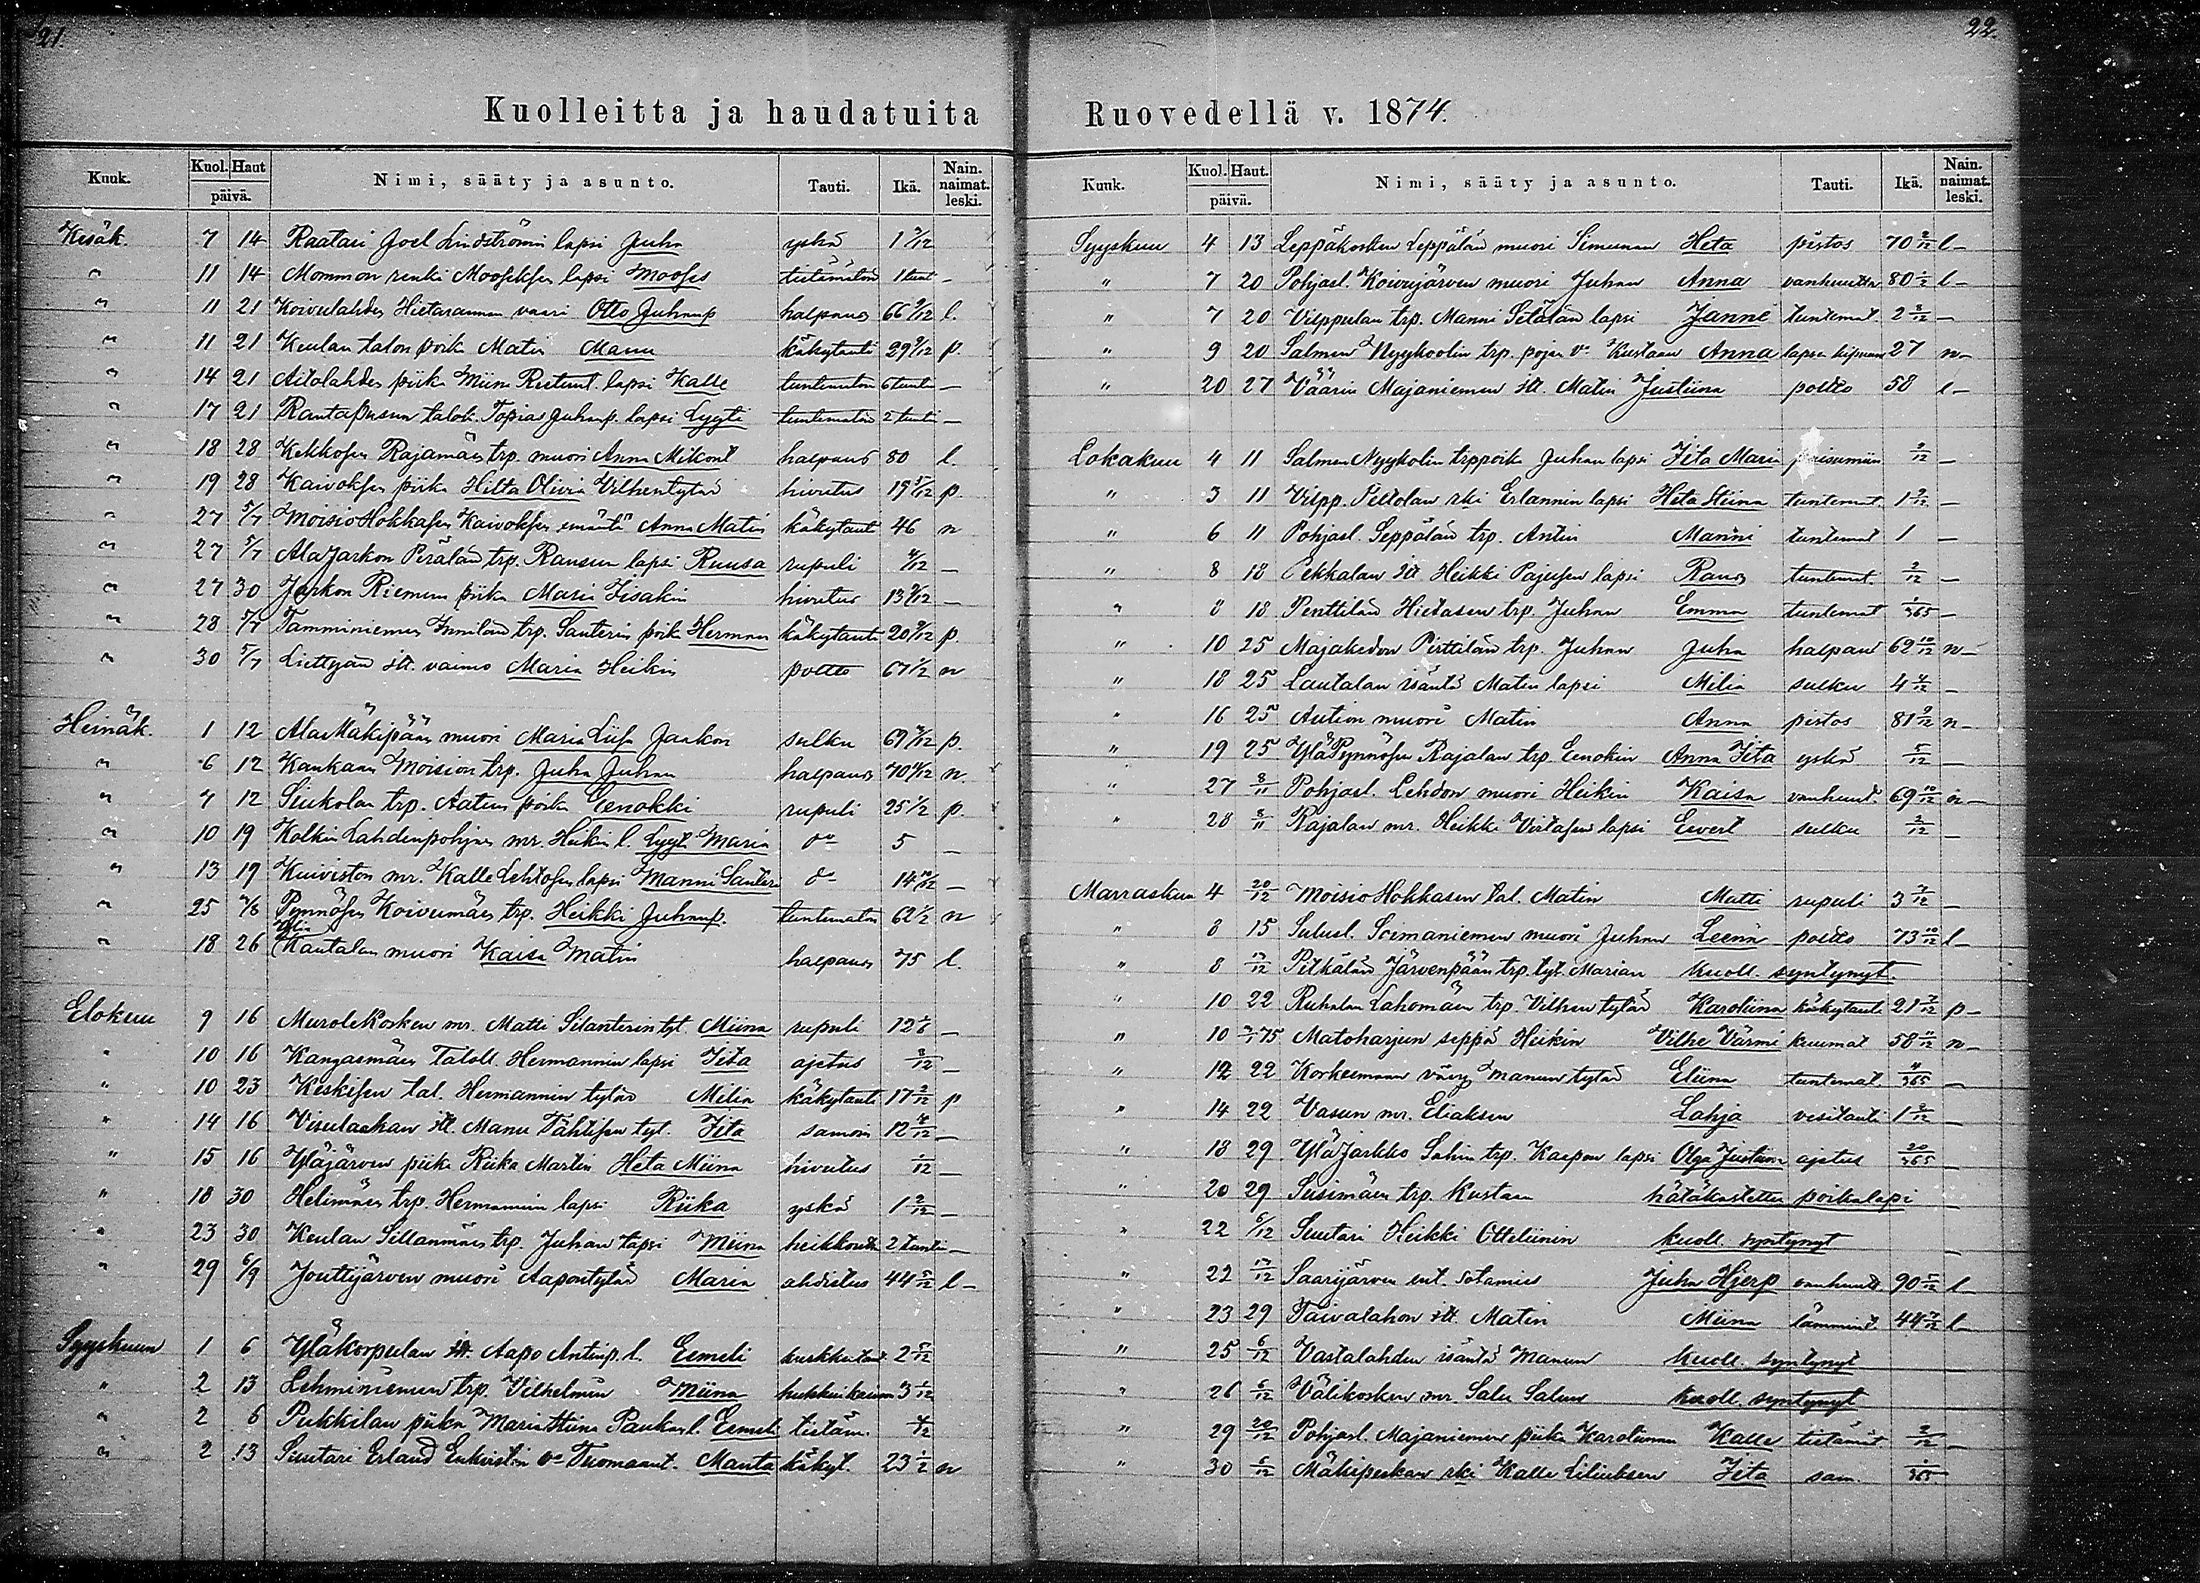 21.
Kuolleitta ja haudatuita
Kuuk. Kuol. Haut päivä. Nimi, sääty ja asunto. Tauti. Ikä. Nain. naimat. leski.
Kesäk. 7 14 Raatari Joel Lindströmin lapsi Juha yskä 1 2/12
" 11 14 Mommon renki lapsi Mooses tietämätön 1 tunt –
" 11 21 Koivulahden Hietarannan vaari Otto Juhanp halpaus 66 9/12 l.
" 11 21 Keulan talon poika Matin Manu käkytauti 29 9/12 p.
" 14 21 Aitolahden piika Miina lapsi Kalle tuntematon 6 tunti –
" 17 21 Rantapusun talok. Topias Juhanp. lapsi Lyyti tuntematon 2 tunti –
" 18 28 Kekkosen Rajamäen trp. muori Anna Mikont halpaus 80 l.
" 19 28 Kaivoksen piika Hilta Olivia Vilhentytär hivutus 19 5/12 p
" 27 5/7 Moisio Hokkasen Kaivoksen emäntä Anna Matin käkytaut 46 n
" 27 5/7 Ala Jarkon Perälän trp. Ransun lapsi Ruusa rupuli 4/12 –
" 27 30 Jarkon Riemun piika Maria Iisakin hivutus –
" 28 5/7 Tamminiemen trp. Santerin poik Herman käkytauti 20 9/12 p.
" 30 5/7 itt. vaimo Maria Heikin poltto 67 1/2 n
Heinäk. 1 12 Ala Mäkipään muori Maria Liisa Jaakon sulku p.
" 6 12 Kankaan Moision trp. Juha Juhan halpaus n.
" 7 12 Siukolan trp. Aatun poika Eenokki rupuli 25 1/2 p.
" 10 19 Kolkin Lahdenpohjan mr. Heikin l. Lyyti Maria do 5 –
" 13 19 Kuiviston mr. Kalle Lehtosen lapsi Manni Santeri do 14 10/12 –
" 25 2/8 Pynnösen Koivumäen trp. Heikki Juhanp. tuntematon 62 1/2 n
" 18 26 Kautalan muori Kaisa Matin halpaus 75 l.
Elokuu 9 16 Murolekosken mr. Matti Silanterin tyt. Miina rupuli –
" 10 16 Kangasmäen Taloll. Hermannin lapsi Iita ajetus 8/12 –
" 10 23 Keskisen tal. Hermannin tytär Milia käkytauti 17 2/12 p
" 14 16 Visulaakan itt. Manu Tähtisen tyt. Iita samoin –
" 15 16 Yläjärven piika Riika Martin Heta Miina hivutus 1/12 –
" 18 30 Helimäen trp. Hermannin lapsi Riika yskä 1 2/12 –
" 23 30 Keulan Sillanmäen trp. Juhan lapsi Miina heikkoutta 2 tuntia –
" 29 6/9 Jouttijärven muori Aapontytär Maria ahdistus 44 5/12 l –
Syyskuun 1 6 Yläkorpulan itt. Aapo Antinp. l. Eemeli kurkkutaut
" 2 13 Lehminiemen trp. Vilhelmin Miina 3 1/12
" 2 6 Pukkilan piika Maria Stiina l. Eemeli tietäm.
" 2 13 Suutari Erland Enkvistin vo Tuomaant. Manta käkyt. 23 1/2 n
22.
Ruovedellä v. 1874.
Kuuk. Kuol. Haut. päivä. Nimi, sääty ja asunto. Tauti. Ikä. Nain. naimat. leski.
Syyskuu 4 13 Leppäkosken Leppälän muori Simunan Heta pistos 70 2/12 l –
" 7 20 Pohjasl. Koivujärven muori Juhan Anna vanhuutta 80 1/2 l –
" 7 20 Vilppulan trp. Manni Setälän lapsi Janne tuntemat. 2 8/12 –
" 9 20 Salmen Nyykoolin trp. pojan vo Kustaan Anna lapsen kipuun 27 n –
" 20 27 Väärin Majaniemen itt. Matin Justiina poltto 58 l –
Lokakuu 4 11 Salmen Nyykolin trppoika Juhan lapsi Iita Maria –
" 3 11 Vilpp. Peltolan rki Erlannin lapsi Heta Stiina tuntemat. 1 9/12 –
" 6 11 Pohjasl. Seppälän trp. Antin Manni tuntemat 1 –
" 8 18 Pekkalan itt Heikki Pajusen lapsi Raus tuntemat. 2/12 –
" 8 18 Penttilän Hietasen trp. Juhan Emma tuntemat 1/365 –
" 10 25 Majakedon Pirttilän trp. Juhan Juha halpaus 62 10/12 n –
" 18 25 Lautalan isäntä Matin lapsi Milia sulku 4 4/12 –
" 16 25 Aution muori Matin Anna pistos 81 9/12 n –
" 19 25 Ylä Pynnösen Rajalan trp. Eenokin Anna Iita yskä 5/12 –
" 27 8/11 Pohjasl. Lehdon muori Heikin Kaisa vanhuut. 69 10/12 n –
" 28 8/11 Rajalan mr. Heikki Virtasen lapsi Eevert sulku 2/12 –
Marraskuu 4 20/12 Moisio Hokkasen tal. Matin Matti rupuli 3 7/12 –
" 8 15 Suiusl. Soimaniemen muori Juhan Leena poltto 73 10/12 l –
" 8 13/12 Pitkälän Järvenpään trp. tyt. Marian kuoll. syntynyt.
" 10 22 Ruhalan Lahomäen trp. Vilhen tytär Karoliina käkytauti 21 2/12 p –
" 10 Matoharjun seppä Heikin Vilhe Värmi kuumat 58 11/12 n –
" 12 22 Korkeeman Manun tytär Eliina tuntemat. 4/365 –
" 14 22 Vasun mr. Eliaksen Lahja vesitauti 1 2/12 –
" 18 29 Ylä Jarkko Sahin trp. Kaapon lapsi Olga Justiina ajetus 20/365 –
" 20 29 Susimäen trp. Kustaan hätäkastettu poikalapsi –
" 22 6/12 Suutari Heikki Otteliinin kuoll. syntynyt –
" 22 13/12 Saarijärven ent. sotamies Juha Hjerp vanhuud. 90 5/12 l
" 23 29 Taivalahon itt. Matin Miina lämmint. 44 7/12 l –
" 25 6/12 Vastalahden isäntä Manun kuoll. syntynyt
" 26 6/12 Välikosken mr. Salu Salun kuoll. syntynyt
" 29 20/12 Pohjasl. Majaniemen piika Karoliinan Kalle tietämät 2/12 –
" 30 6/12 Mäkipeskan rki Kalle Liliuksen Iita sam. 1/365